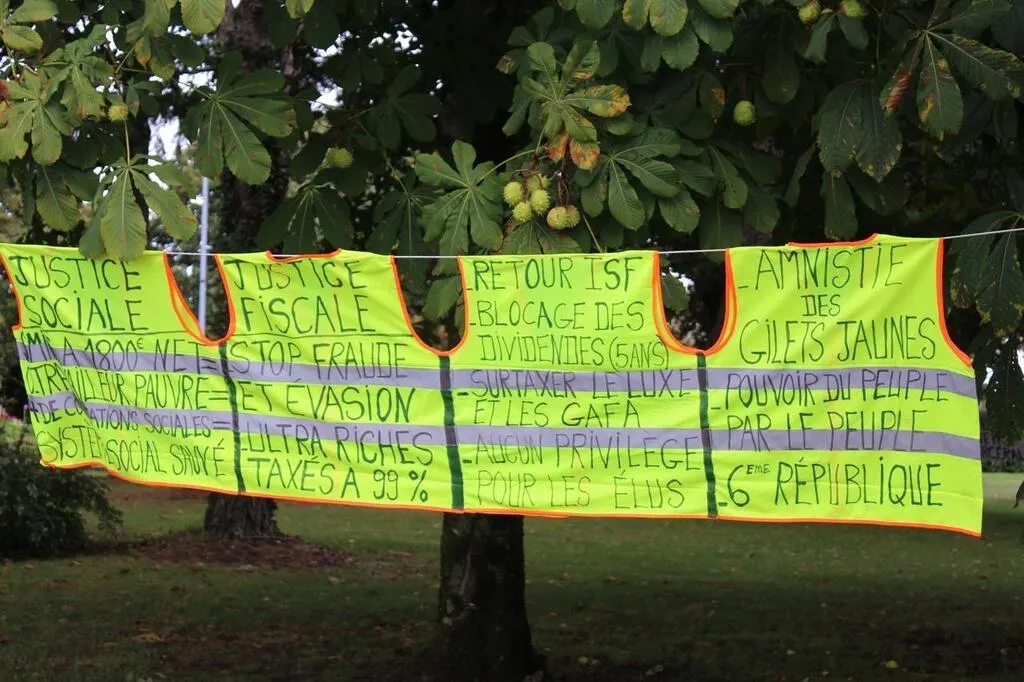 JUSTICE
SOCIALE
A 1800€ NET=
PAUVRE=
COTISATIONS SOCIALES=
SYSTEME SOCIAL SAUVÉ
JUSTICE
FISCALE
STOP FRAUDE
ET ÉVASION
ULTRA RICHES
TAXÉS A 99%
-RETOUR ISF
-BLOCAGE DES
DIVIDENDES (5ANS)
-SURTAXER LE LUXE
ET LES GAFA
-AUCUN PRIVILEGE
POUR LES ÉLUS
-AMNISTIE
DES
GILETS JAUNES
-POUVOIR DU PEUPLE
PAR LE PEUPLE
-6EME RÉPUBLIQUE